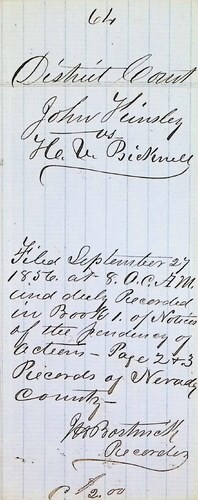 64
District Court
John Kinsley
vs
H. V. Bicknell
Filed September 27
1856. at 8. O.C. A.M.
and duly Recorded
in Book 1. of Notices
of the pendency of
actions - Page 2 & 3
Records of Nevada
County
Bostwick
Recorder
$2.00